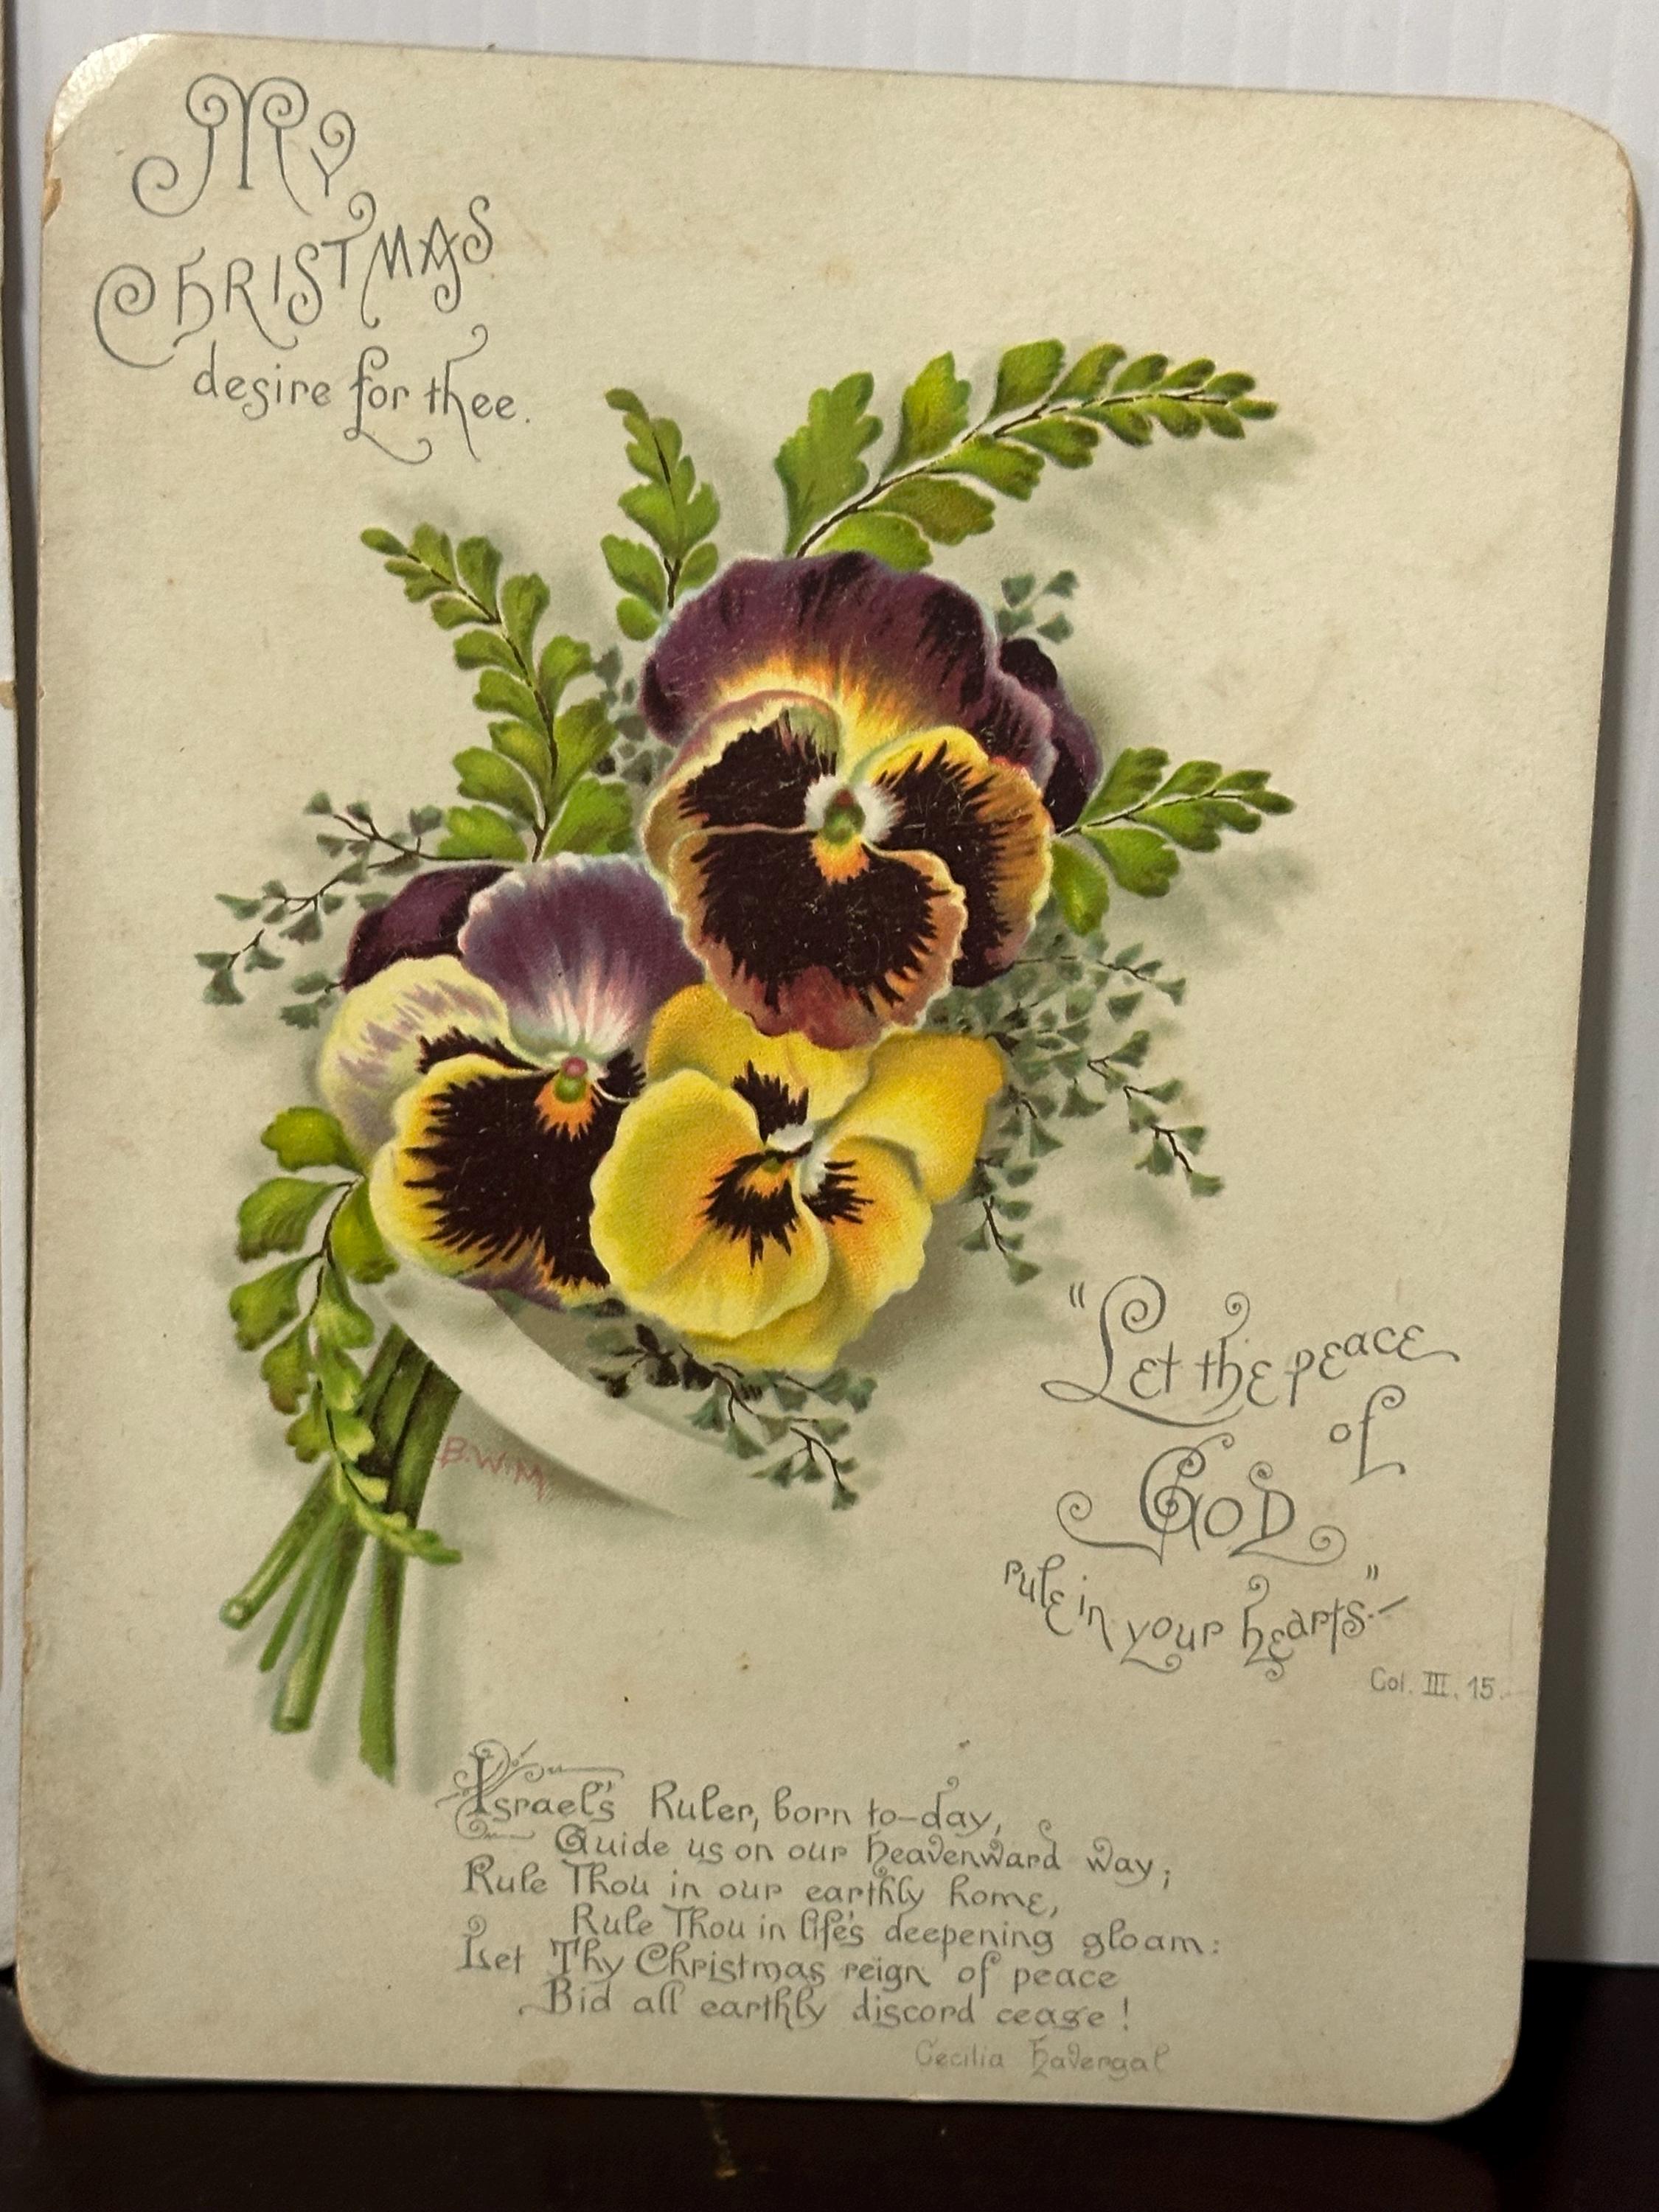 My
Christmas
desire for thee.
B.W.M.
"Let the peace
of
God
rule in your hearts."—
Col. III. 15.
Israel's Ruler, born to-day,
Guide us on our heavenward way;
Rule Thou in our earthly home,
Rule Thou in life's deepening gloam:
Let Thy Christmas reign of peace
Bid all earthly discord cease!
Cecilia Havergal